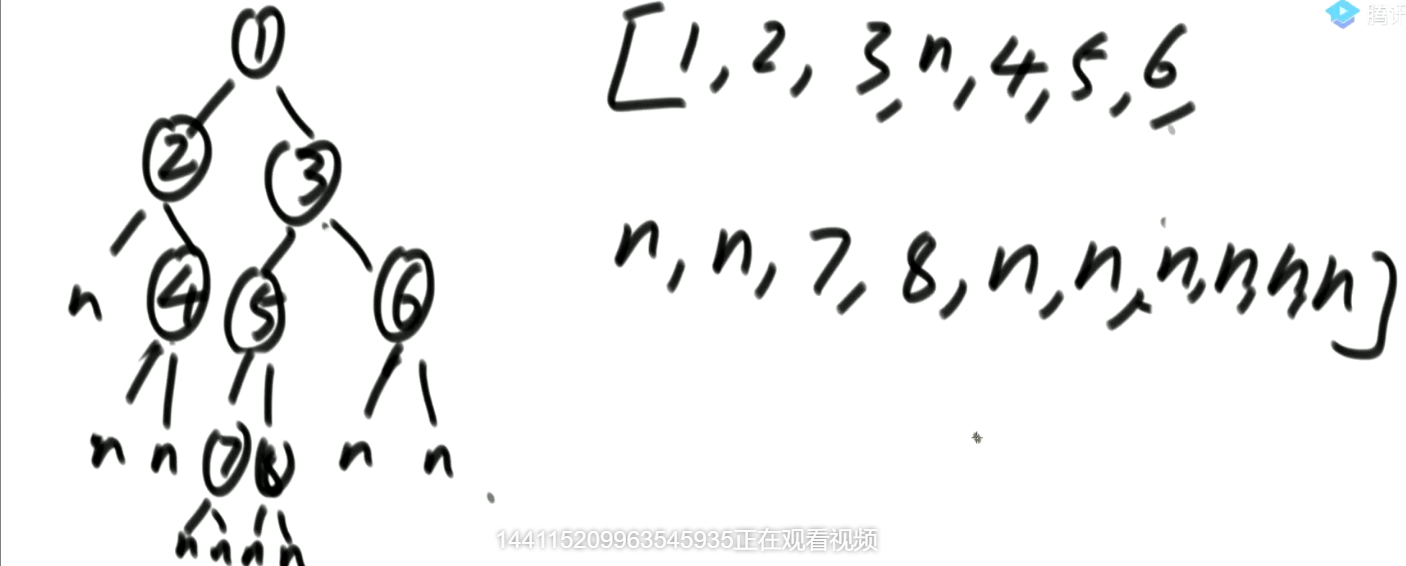 腾讯
[1, 2, 3, n, 4, 5, 6,
n, n, 7, 8, n, n, n, n, n, n]
1
2 3
n 4 5 6
n n 7 8 n n
n n n n
144115209963545935正在观看视频